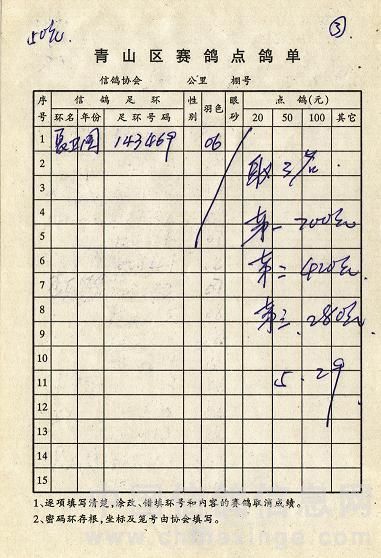 50元 ③
青山区赛鸽点鸽单
信鸽协会 公里 棚号
序号 信鸽足环 性别 羽色 眼砂 点鸽(元)
环名 年份 足环号码 20 50 100 其它
1 143469 06
2 取三名
3
4 第一 700元
5
6 第二 420元
7
8 第三 280元
9
10
11 5.29
12
13
14
15
1、逐项填写清楚,涂改、错填环号和内容的赛鸽取消成绩。
2、密码环存根,坐标及笼号由协会填写。